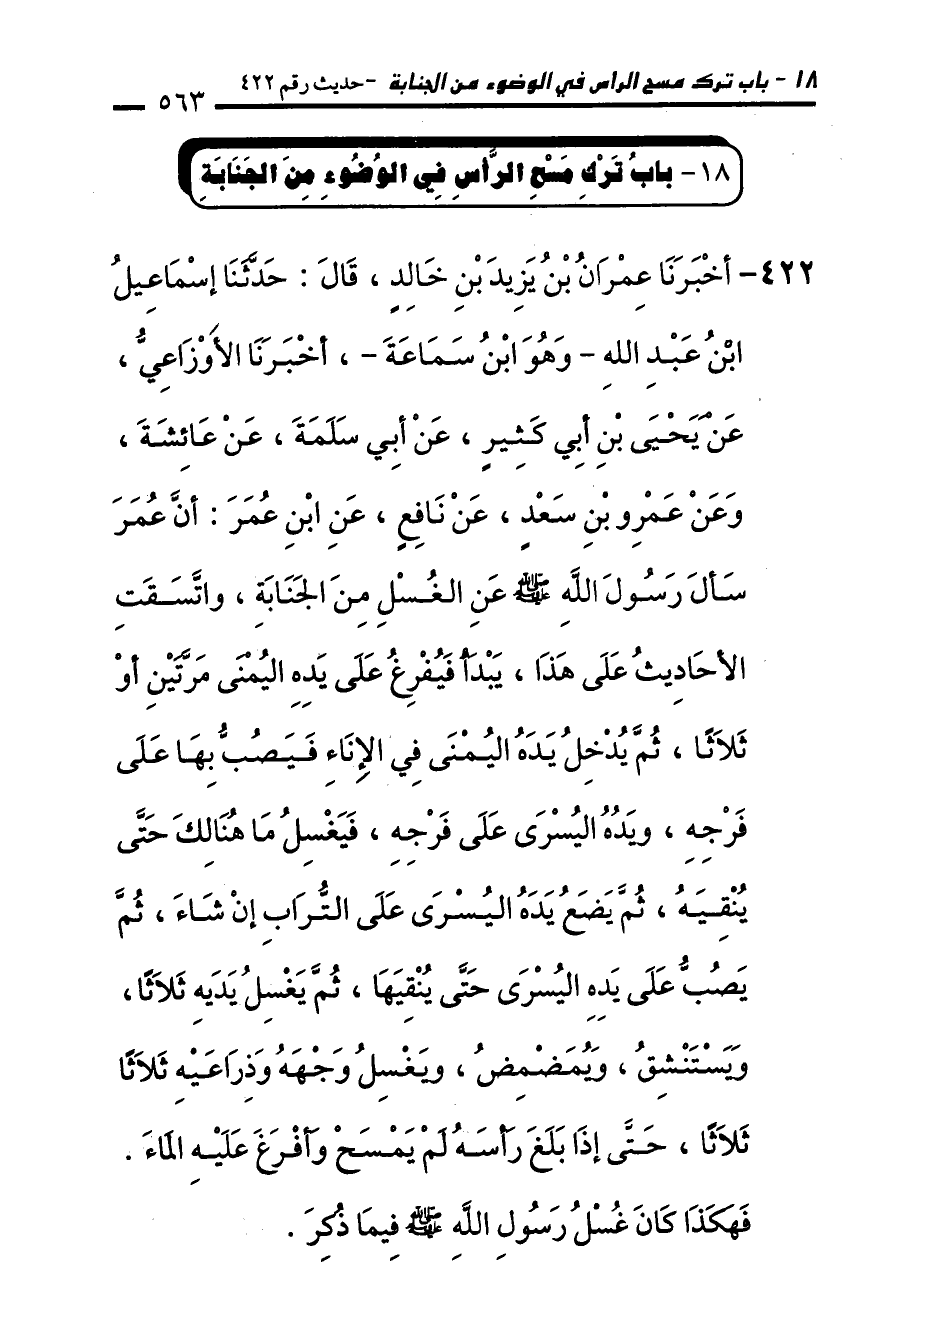 ١٨ - باب ترك مسح الرأس في الوضوء من الجنابة - حديث رقم ٤٢٢
٥٦٣
١٨- بابُ تَرْكِ مَسْحِ الرَّأسِ فِي الوُضُوءِ مِنَ الجَنَابَةِ
٤٢٢- أخْبَرَنَا عِمْرَانُ بْنُ يَزِيدَ بْنِ خَالِدٍ ، قَالَ : حَدَّثَنَا إسْمَاعِيلُ
ابْنُ عَبْدِ اللهِ - وَهُوَ ابْنُ سَمَاعَةَ - ، أخْبَرَنَا الأوْزَاعِيُّ ،
عَنْ يَحْيَى بْنِ أبِي كَثِيرٍ ، عَنْ أبِي سَلَمَةَ ، عَنْ عَائِشَةَ ،
وَعَنْ عَمْرِو بْنِ سَعْدٍ ، عَنْ نَافِعٍ ، عَنِ ابْنِ عُمَرَ : أنَّ عُمَرَ
سَألَ رَسُولَ اللَّهِ ﷺ عَنِ الغُسْلِ مِنَ الجَنَابَةِ ، واتَّسَقَتِ
الأحَادِيثُ عَلَى هَذَا ، يَبْدَأُ فَيُفْرِغُ عَلَى يَدِهِ اليُمْنَى مَرَّتَيْنِ أوْ
ثَلاَثًا ، ثُمَّ يُدْخِلُ يَدَهُ اليُمْنَى فِي الإِنَاءِ فَيَصُبُّ بِهَا عَلَى
فَرْجِهِ ، ويَدُهُ اليُسْرَى عَلَى فَرْجِهِ ، فَيَغْسِلُ مَا هُنَالِكَ حَتَّى
يُنْقِيَهُ ، ثُمَّ يَضَعُ يَدَهُ اليُسْرَى عَلَى التُّرَابِ إنْ شَاءَ ، ثُمَّ
يَصُبُّ عَلَى يَدِهِ اليُسْرَى حَتَّى يُنْقِيَهَا ، ثُمَّ يَغْسِلُ يَدَيهِ ثَلاَثًا ،
وَيَسْتَنْشِقُ ، وَيُمَضْمِضُ ، وَيَغْسِلُ وَجْهَهُ وَذِرَاعَيْهِ ثَلاَثًا
ثَلاَثًا ، حَتَّى إذَا بَلَغَ رَأسَهُ لَمْ يَمْسَحْ وَأفْرَغَ عَلَيْهِ المَاءَ .
فَهَكَذَا كَانَ غُسْلُ رَسُولِ اللَّهِ ﷺ فِيمَا ذُكِرَ .